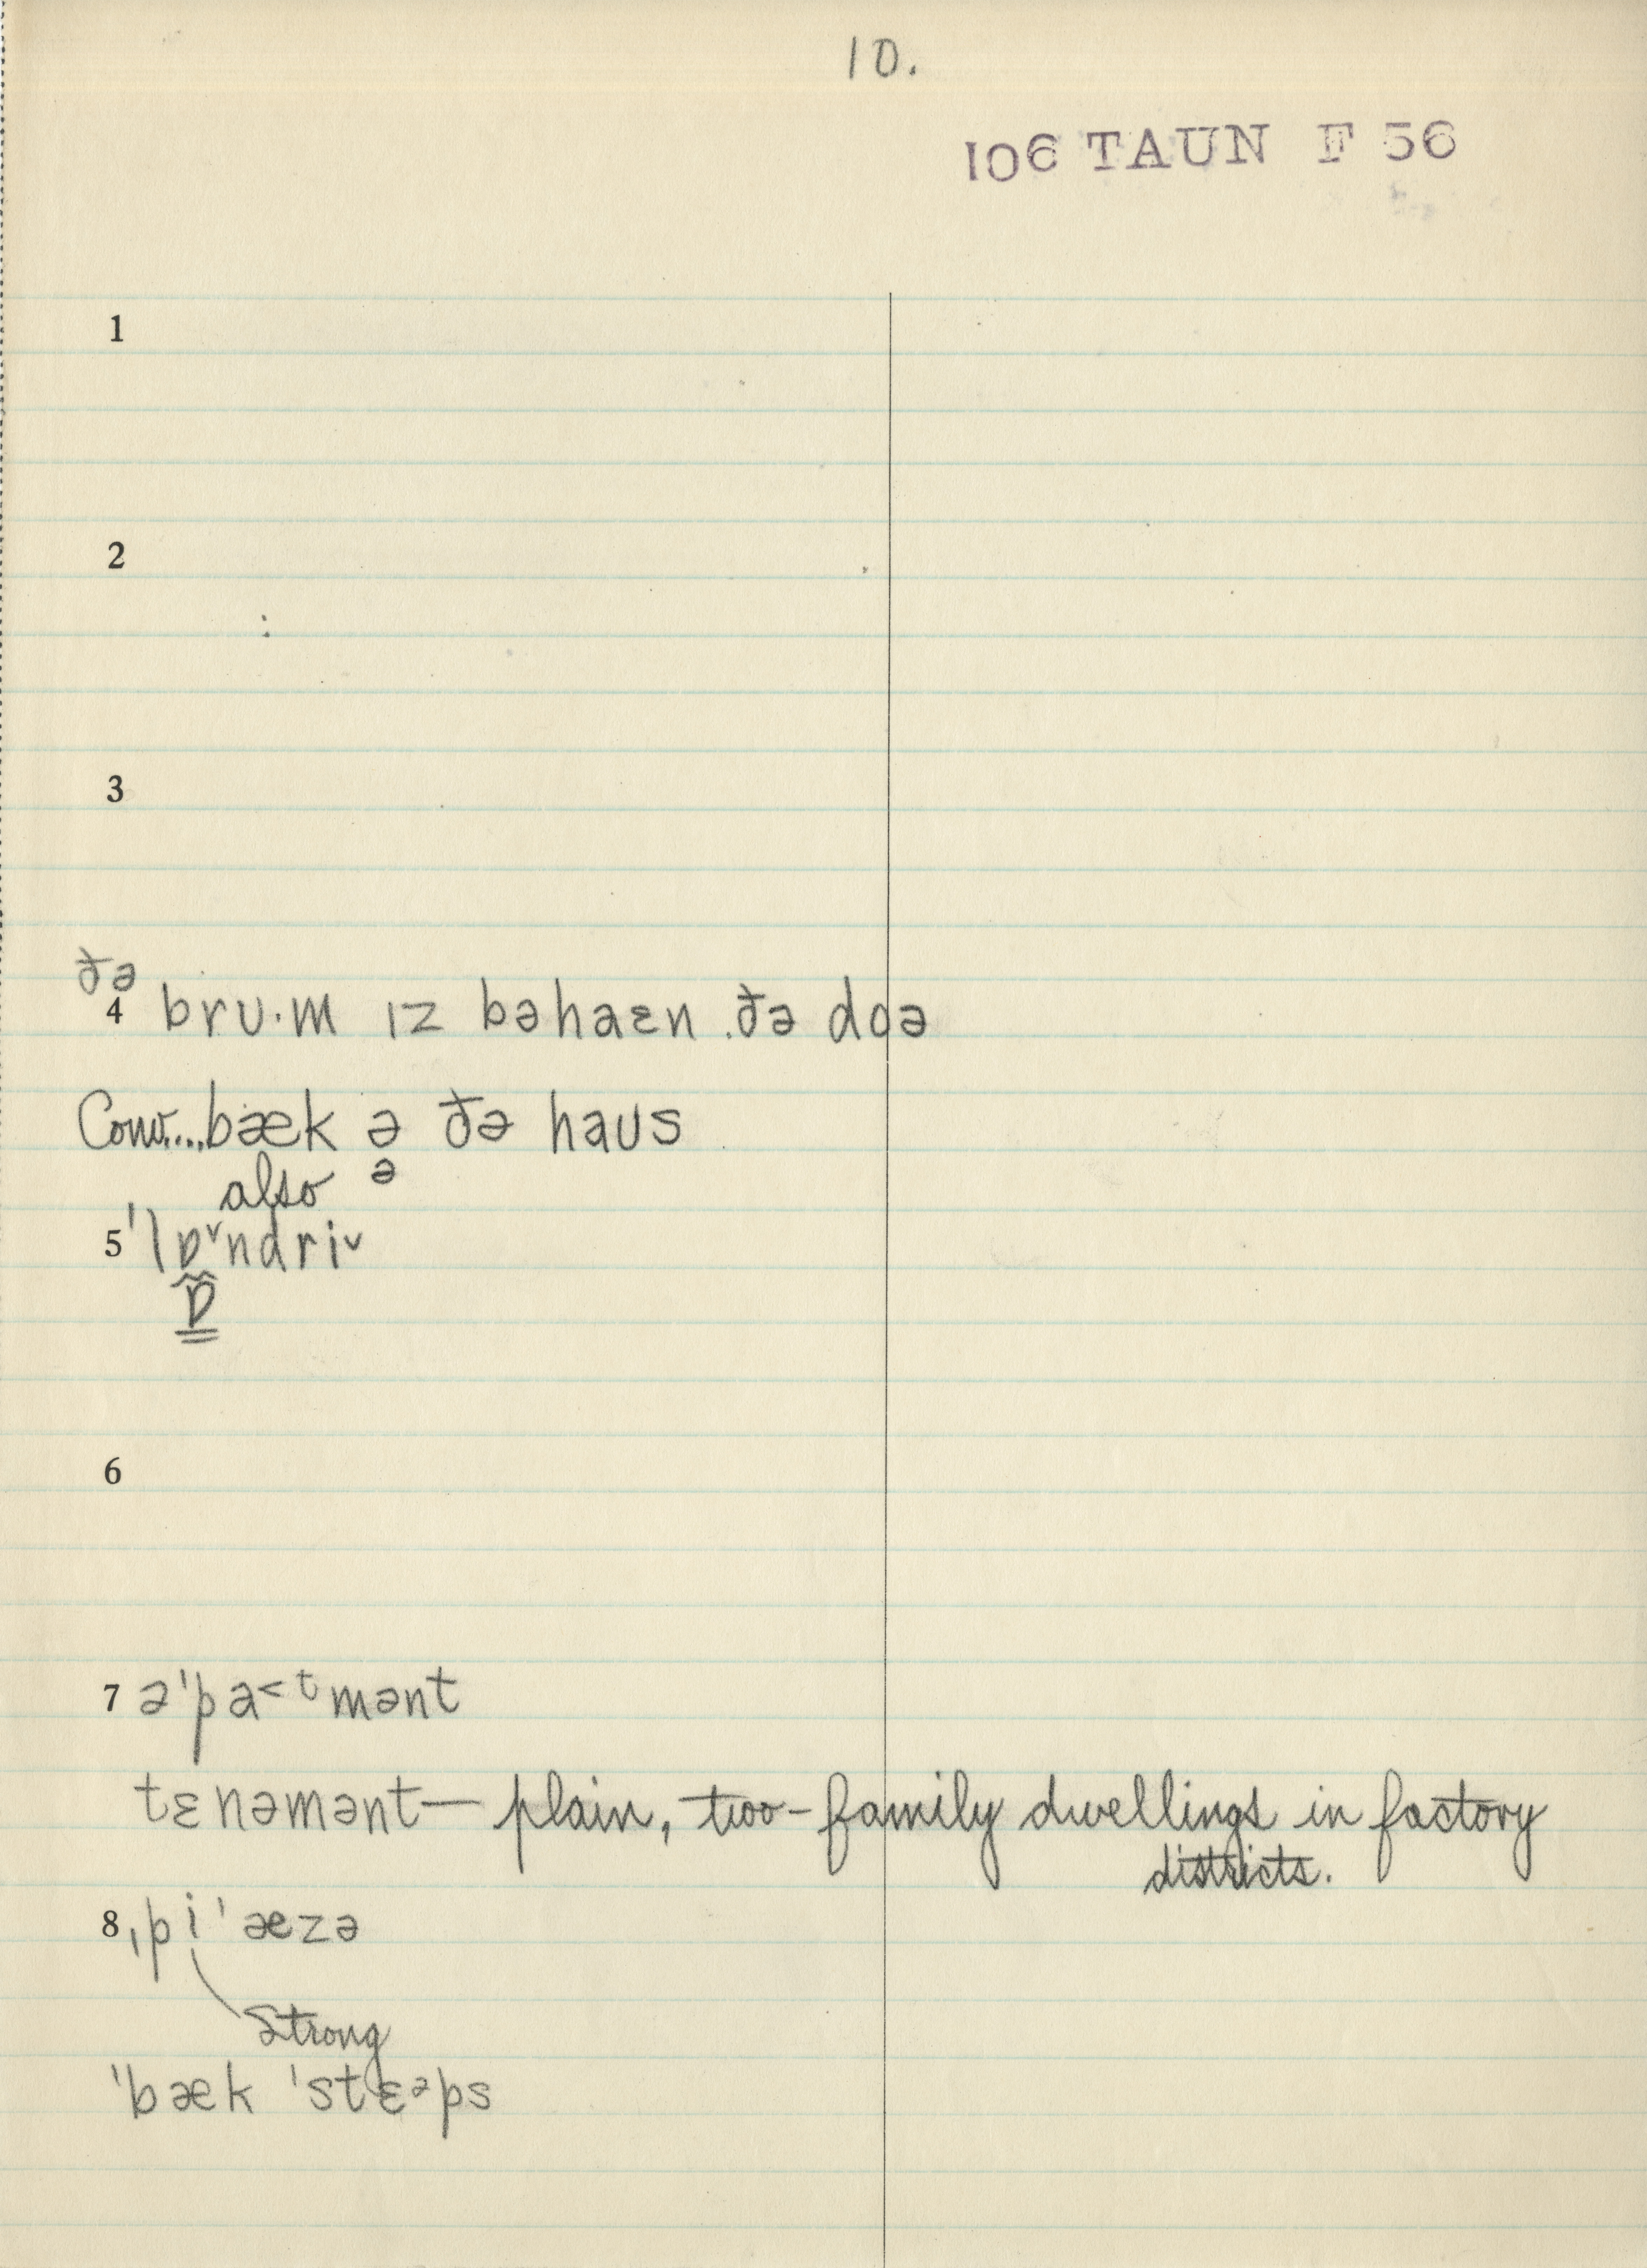 10.
106 TAUN F 56
1
2
3
ðə
4 brʊ·m ɪz bəhaɛn ðə dɒə
Conv....bæk ə ðə haʊs
also ə
5 'lɒ˅ndri˅
ɒ
6
7 ə'pa<ᵗmənt
tɛnəmənt— plain, two-family dwellings in factory
districts.
8 ˌpi'æzə
Strong
'bæk 'stɛᵊps